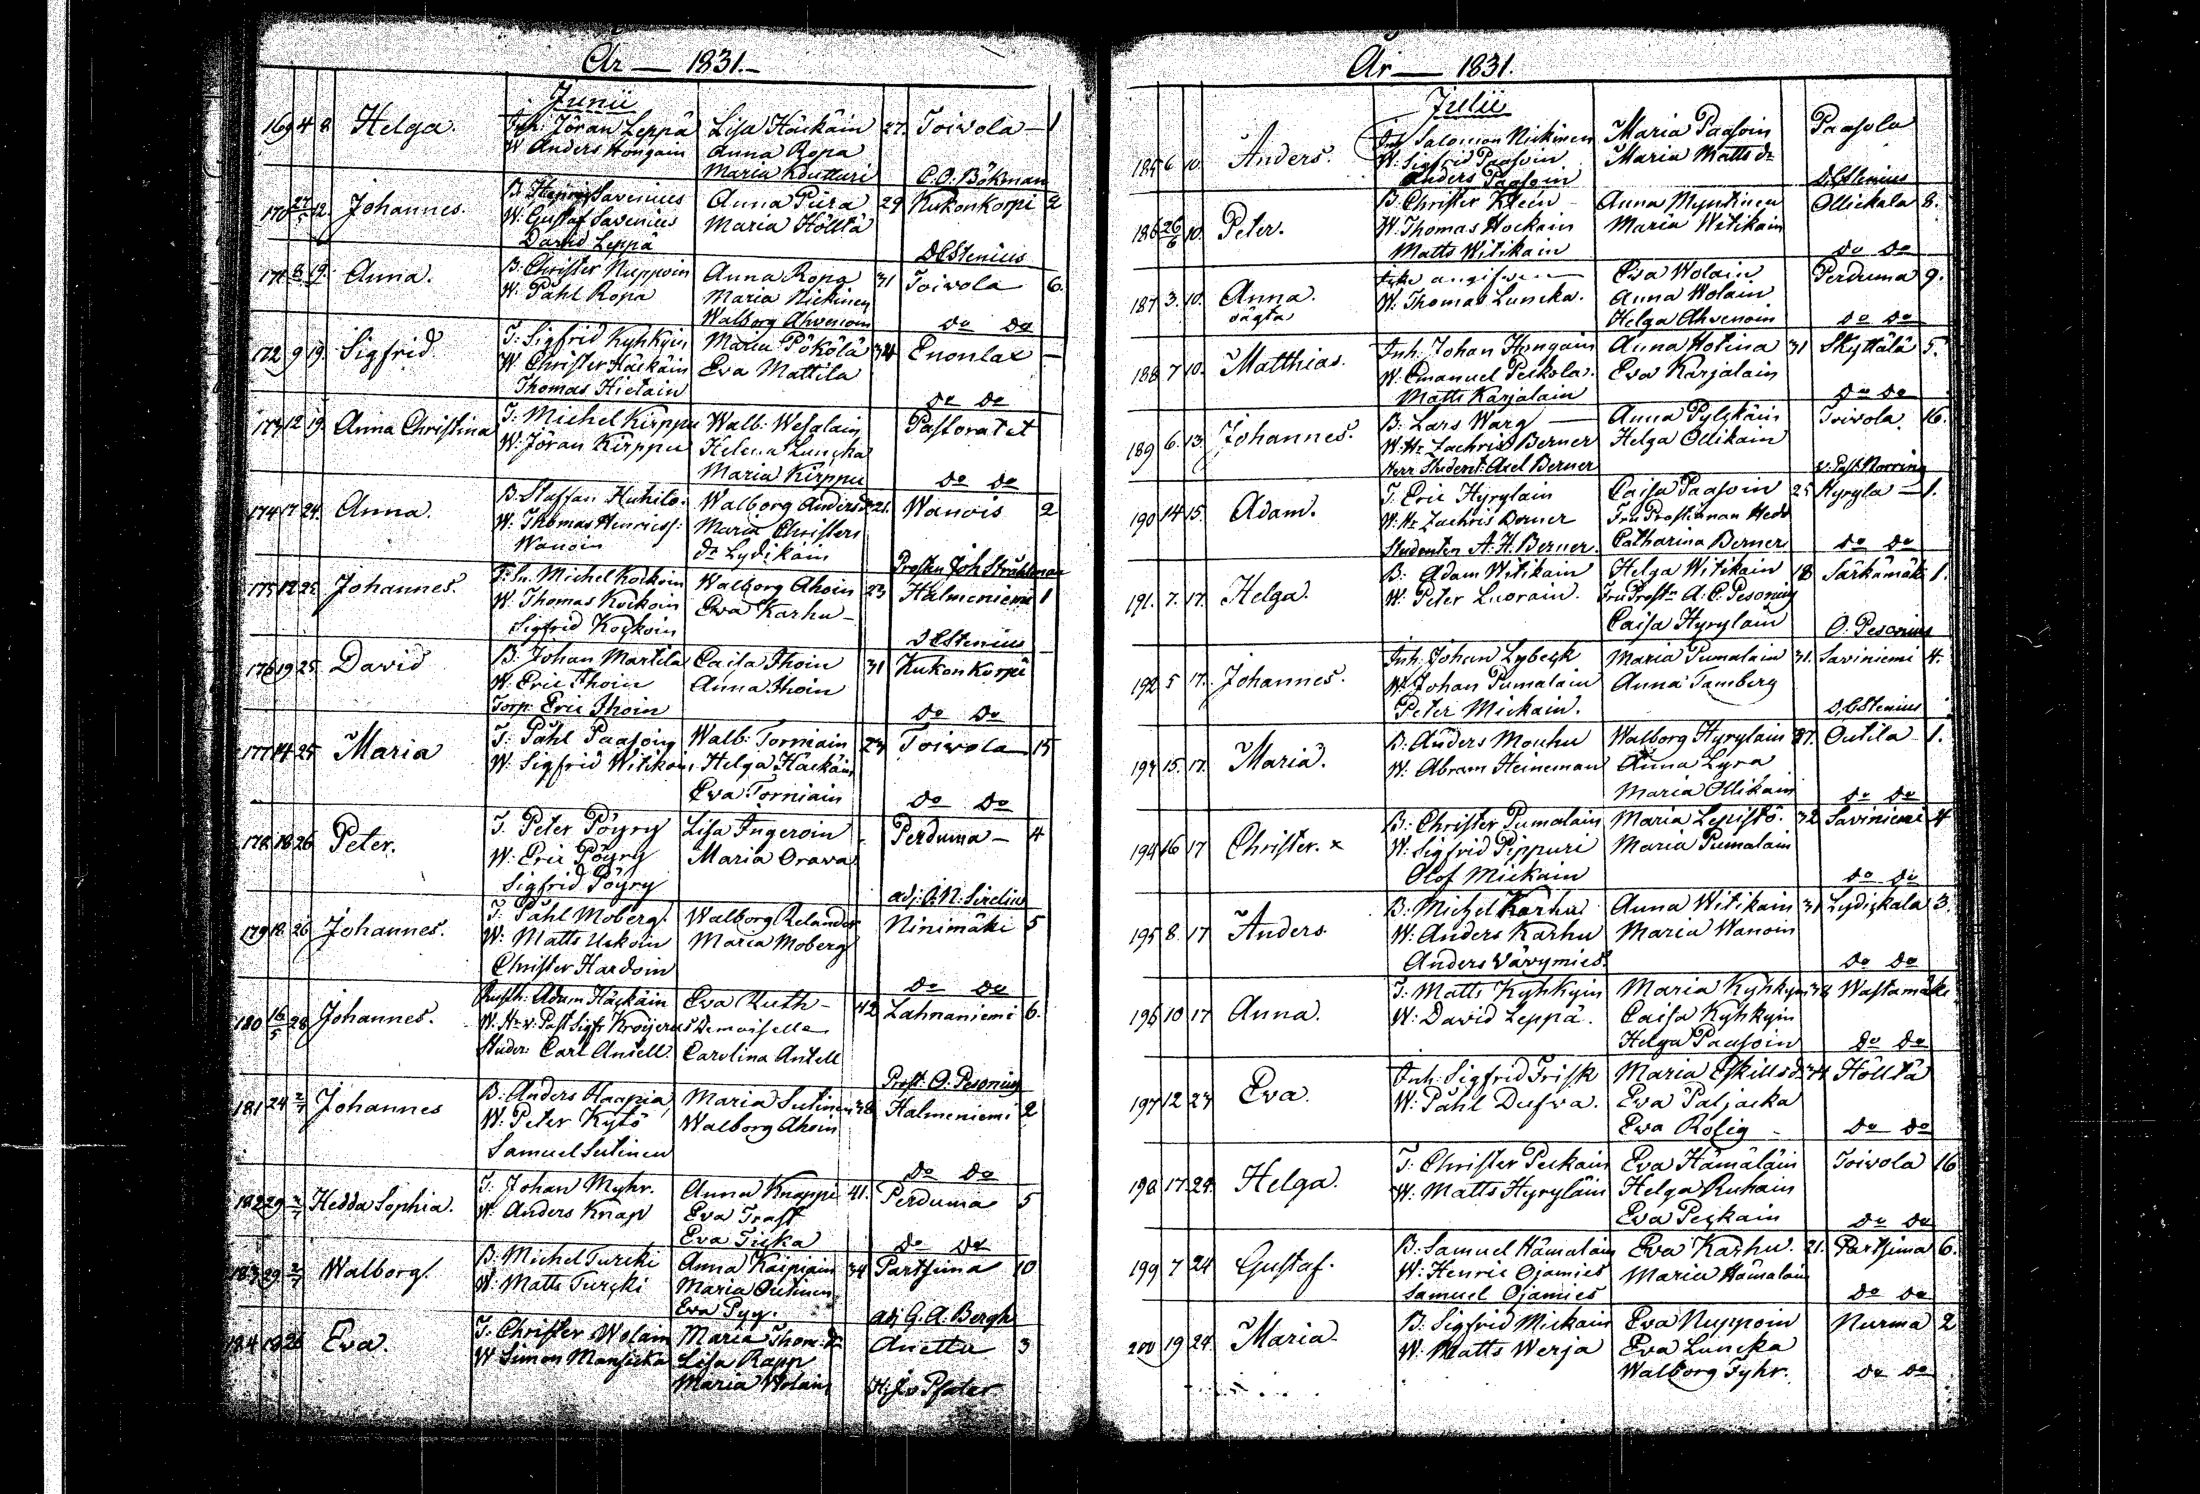 År — 1831.
Junii
169 4 8 Helga. Inh: Jöran Leppä Lisa Häckäin 27. Toivola — 1
W Anders Hongain Anna Ropa
Maria Koutturi C. O. Bökman
170 12. Johannes. B. Savenius Anna Pura 29 Kukonkorpi 2
W: Gustaf Savenius Maria Hölltä
David Leppä D Estenius
171 8 19. Anna. B: Christer Nuppoin Anna Ropa 31 Toivola 6.
W: Påhl Ropa Maria Nickinen
Walborg Ahvenoin do do
172 9 19. Sigfrid. T: Sigfrid Kyhkyin Maria Pökölä 34 Enonlax —
W Christer Häckäin Eva Mattila
Thomas Hietain do do
173 12 19 Anna Christina T: Michel Kirppu Walb: Wesalain Pastoratet
W: Jöran Kirppu Helena Luncka
Maria Kirppu do do
174 17 24. Anna. B. Staffan Huhilo. Walborg Andersdr 21. Wanois 2
W. Thomas Hinricss: Maria Christers
Wanoin dr Lydikäin Prosten Joh Stråhlman
175 12 25 Johannes. Michel Kockoin Walborg Ahoin 23 Halmeniemi 1
W. Thomas Kockoin Eva Karhu —
Sigfrid Kockoin D Estenius
176 19 25. David B. Johan Martila Caisa Ihoin 31 Kukonkorpi
W: Eric Ihoin Anna Ihoin
Torp: Eric Ihoin do do
177 14 25 Maria T: Påhl Paasoin Walb: Torniain 23 Toivola 15
W: Sigfrid Witikain Helga Häckäin
Eva Torniain do do
178 18 26 Peter. T. Peter Pöyry Lisa Ingeroin Perduma — 4
W: Eric Pöyry Maria Orawa
Sigfrid Pöyry adj: O. N. Sirelius
179 18. 26 Johannes. T: Påhl Moberg. Walborg Relander Ninimäki 5
W: Matts Uskoin Maria Moberg
Christer Hardoin do do
180 16/5 28 Johannes. Adam Häckäin Eva Ruth — 42 Lahnaniemi 6.
W. Hr v: Past Sigfr Kröijerus Demoiselle
Studer: Carl Antell Carolina Antell Prost: O. Pesonius
181 24 2/7 Johannes B: Anders Haapia Maria Sutinen 38 Halmeniemi 2
W: Peter Kytö Walborg Ahoin
Samuel Sutinen do do
182 29 2/7 Hedda Sophia. T. Johan Myhr. Anna Knappe 41. Perduma 5
W: Anders Knap Eva Trast
Eva Triska do do
183 29 2/7 Walborg. B. Michel Turcki Anna Kaipiain 34 Partsima 10
W: Matts Turcki Maria Outinen
Eva Pyy. adj G. A. Bergh
184 18 26 Eva. T: Christer Wolain Maria Thom: dr Anetta 3
W Simon Mansicka Lisa Rapp
Maria Wolain
År — 1831.
Julii
185 6 10. Anders. Inh Salomon Nickinen Maria Paasoin Paasola
W: Sigfrid Paasoin Maria Matts dr
Anders Paasoin D. Estenius
186 26/6 10. Peter. B: Christer Klein Anna Mynttinen Ollickala 8.
W. Thomas Hockain Maria Witikain
Matts Witikain do do
187 3. 10. Anna. Icke angifven Eva Wolain Perduma 9.
oägta W. Thomas Luncka. Anna Wolain
Helga Ahvenoin do do
188 7 10. Matthias. Inh: Johan Hongain Anna Hotina 31 Skyttälä 5.
W: Emanuel Peskola. Eva Karjalain
Matts Karjalain do do
189 6. 13. Johannes. B: Lars Warg — Anna Pylskäin Toivola 16.
W: Hr Zachris Berner Helga Ollikain
Herr Student: Axel Berner v: Past Norring
190 14 15. Adam. T. Eric Hyrylain Caisa Paasoin 25 Hyryla — 1.
W: Hr Zachris Berner Fru Prostinnan Hedv
Studenten A. H. Berner. Catharina Berner do do
191. 7. 17. Helga. B: Adam Witikain Helga Witikain 18 Särkämäki 1.
W: Peter Luorain. Fru Prostn A: C. Pesonius
Caisa Hyrylain O. Pesonius
192 5 17. Johannes. Inh: Johan Lybeck Maria Pumalain 31. Saviniemi 4.
W: Johan Pumalain Anna Tamberg
Peter Mickain. D. Estenius
193 15. 17. Maria. B: Anders Mouhu Walborg Hyrylain 37. Outila 1.
W: Abram Heineman Anna Lyra
Maria Ollikain do do
194 16 17 Christer. x B: Christer Pumalain Maria Lepistö. 32 Saviniemi 4
W: Sigfrid Pippuri Maria Pumalain
Olof Mickain do do
195 8. 17 Anders B: Michel Karhu Anna Witikain 31 Lydickala 3.
W: Anders Karhu Maria Wanoin
Anders Vävymies. do do
196 10 17 Anna. T: Matts Kyhkyin Maria Kyhkyin 38 Wastamäki
W: David Leppä. Caisa Kyhkyin
Helga Paasoin do do
197 12 23 Eva. Inh: Sigfrid Frisk Maria Eskillsdr 44 Hölltä
W: Påhl Dufva. Eva Paljacka
Eva Rolig — do do
198 17 24. Helga. T: Christer Peckain Eva Hämäläin Toivola 16
W: Matts Hyryläin Helga Ruhain
Eva Peckain do do
199 7 24 Gustaf. B: Samuel Hämalain Eva Karhu. 21. Partsima 6.
W: Henric Ojamies Maria Hämalain
Samuel Ojamies do do
200 19 24. Maria. B. Sigfrid Mickain Eva Nuppoin Nurma 2
W: Matts Werja Eva Luncka
Walborg Fyhr. do do